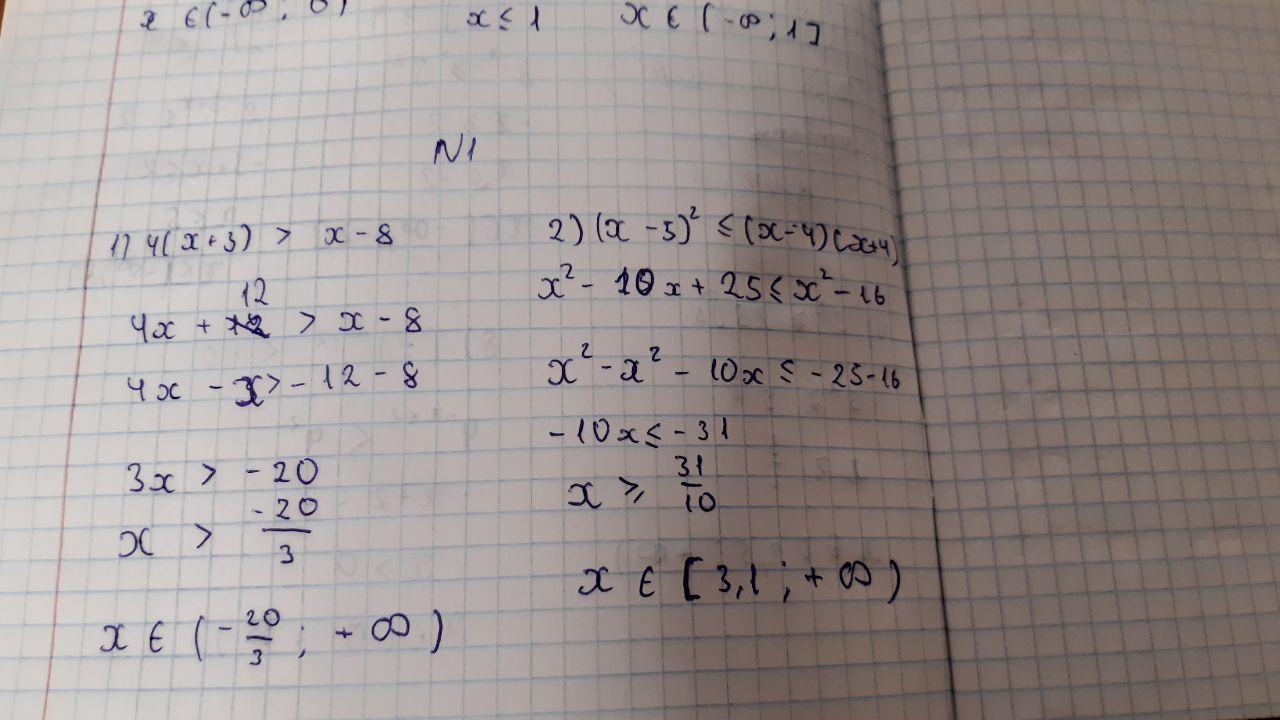 x ∈ (-∞; 0) x ≤ 1 x ∈ (-∞; 1]
N1
1) 4(x+3) > x - 8
12
4x + 12 > x - 8
4x - x > - 12 - 8
3x > - 20
x > -20/3
x ∈ (-20/3; + ∞)
2) (x - 5)² ≤ (x-4)(x+4)
x² - 10x + 25 ≤ x² - 16
x² - x² - 10x ≤ - 25-16
-10x ≤ - 31
x ≥ 31/10
x ∈ [3,1; + ∞)